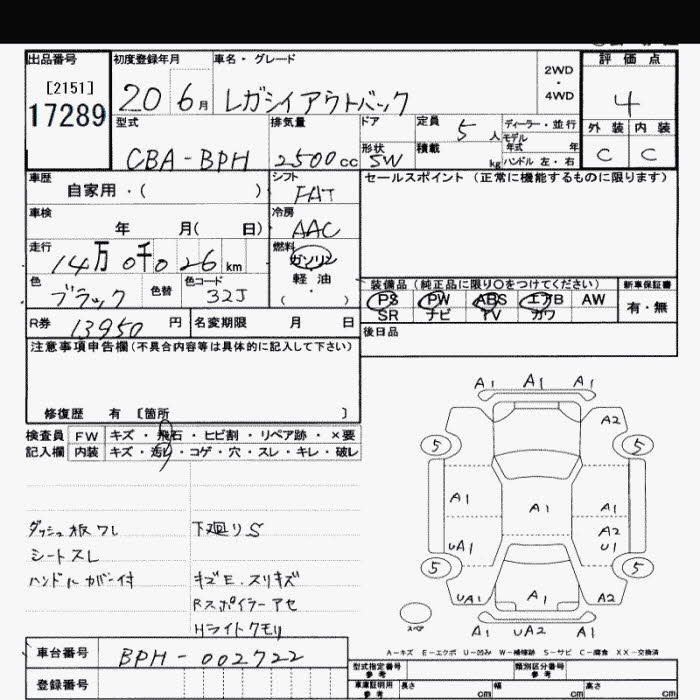 出品番号
[2151]
17289
初度登録年月
20 6月
車名・グレード
レガシィアウトバック
2WD
・
4WD
評価点
4
外装 内装
C C
型式
CBA-BPH
排気量
2500cc
ドア
形状
SW
定員
5人
積載
kg
ディーラー・並行
モデル
年式 年
ハンドル 左・右
車歴
自家用・( )
シフト
FAT
セールスポイント(正常に機能するものに限ります)
車検
年 月( 日)
冷房
AAC
走行
14万0千026km
燃料
ガソリン
軽油
( ・ )
色
ブラック
色替
色コード
32J
装備品(純正品に限り○をつけてください)
新車保証書
PS PW ABS エアB AW
SR ナビ TV カワ
有・無
R券
13950円
名変期限 月 日
後日品
注意事項申告欄(不具合内容等は具体的に記入して下さい)
修復歴 有 [箇所 ]
検査員
記入欄
FW キズ・飛石・ヒビ割・リペア跡・×要
内装 キズ・汚レ・コゲ・穴・スレ・キレ・破レ
ダッシュ板ワレ
シートスレ
ハンドルカバー付
下廻りS
キズE.スリキズ
Rスポイラーアセ
Hライトクモリ
A1 A1 A1
A2
5 5
A1 A1 A1
A2
UA1 U1
5 5
UA1 A1 A2
A1 UA2 A1
スペア
A-キズ E-エクボ U-凹み W-補修跡 S-サビ C-腐食 XX-交換済
車台番号
BPH-002722
登録番号
型式指定番号
参考
類別区分番号
参考
車庫証明用
参考
長さ cm 幅 cm 高さ cm